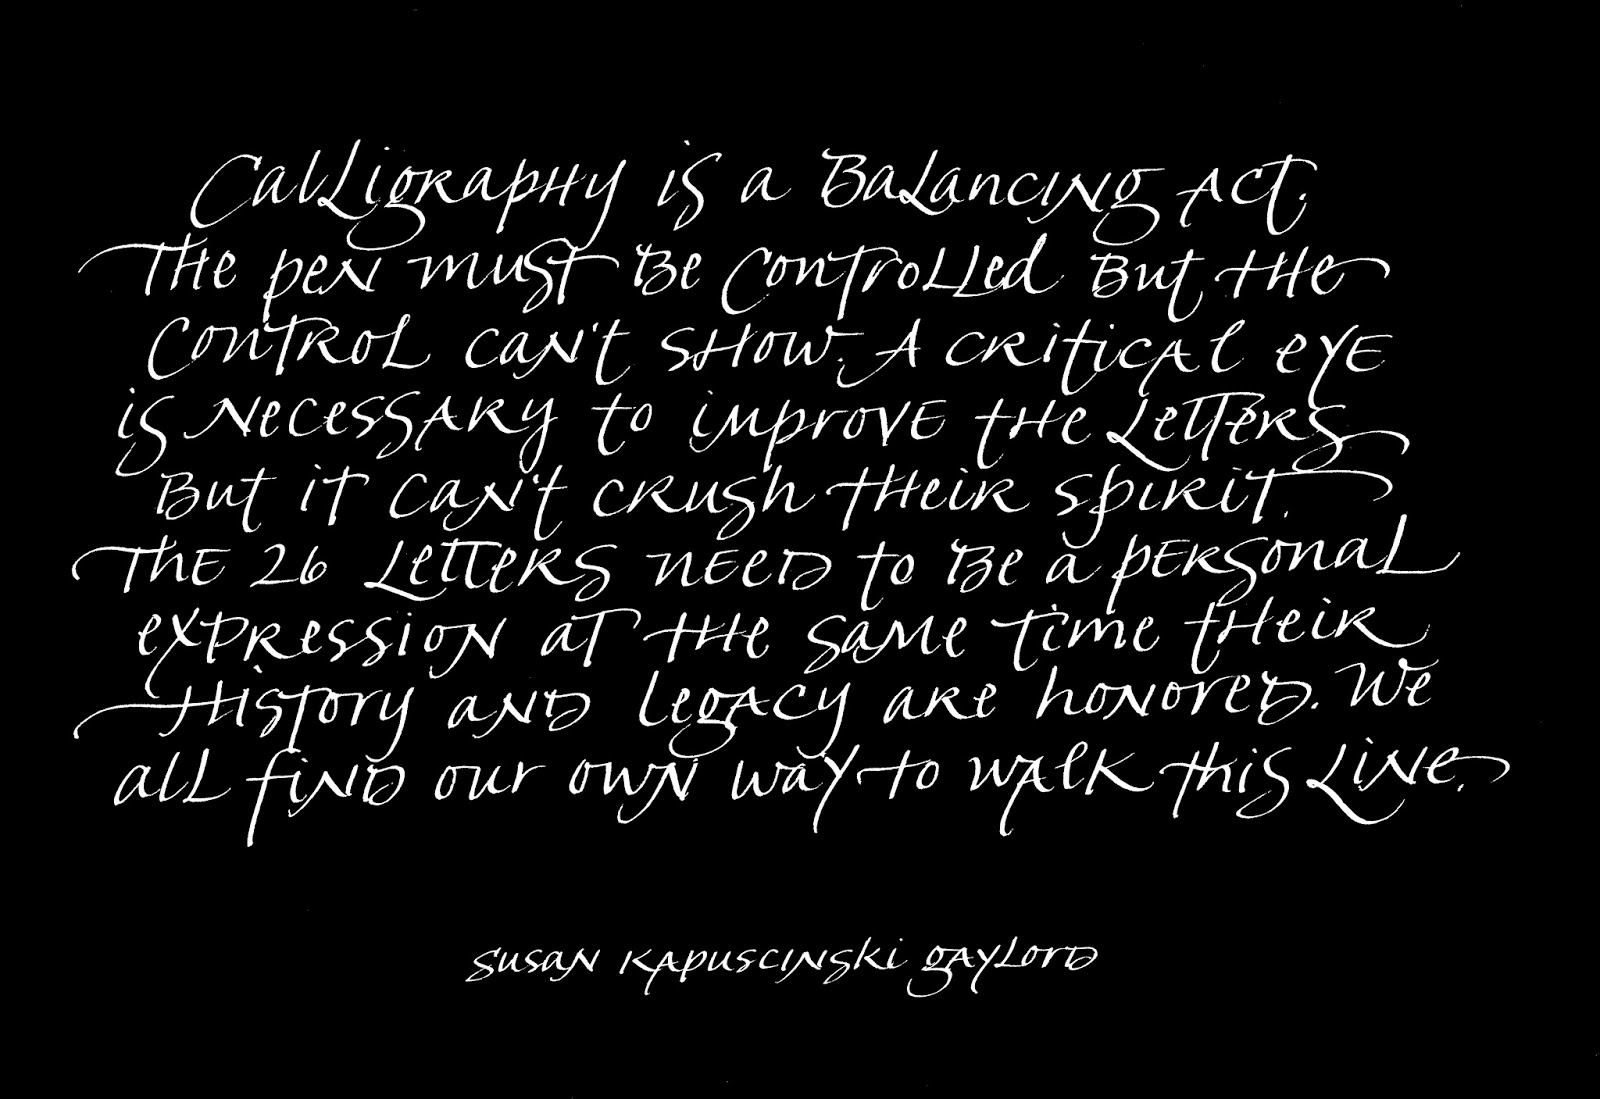 Calligraphy is a Balancing Act.
The pen must be controlled but the
control can't show. A critical eye
is necessary to improve the letters
But it can't crush their spirit.
The 26 letters need to be a personal
expression at the same time their
history and legacy are honored. We
all find our own way to walk this line.
Susan Kapuscinski Gaylord